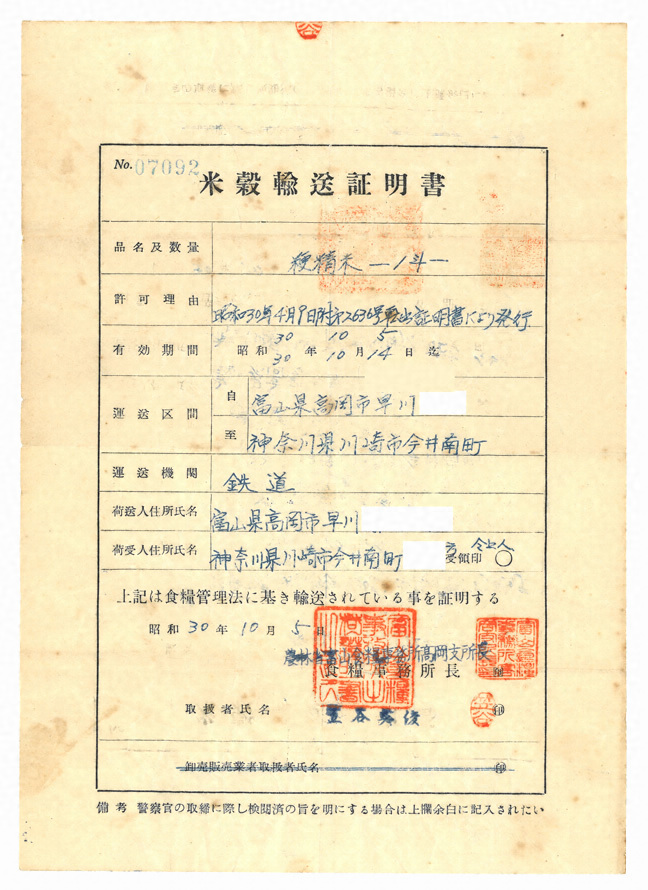 No. 07092
米穀輸送証明書
品名及数量
粳精米 一 1斗 一
許可理由
昭和30年4月9日附才2636号転出証明書により発行
有効期間
昭和 30 年 10 月 5 日
30 10 14 迄
運送区間
自
富山県高岡市早川
至
神奈川県川崎市今井南町
運送機関
鉄道
荷送人住所氏名
富山県高岡市早川
荷受人住所氏名
神奈川県川崎市今井南町
方
受領印
上記は食糧管理法に基き輸送されている事を証明する
昭和 30 年 10 月 5 日
農林省富山食糧事務所高岡支所長
食糧事務所長 印
取扱者氏名
印
卸売販売業者取扱者氏名 印
備考 警察官の取締に際し検閲済の旨を明にする場合は上欄余白に記入されたい